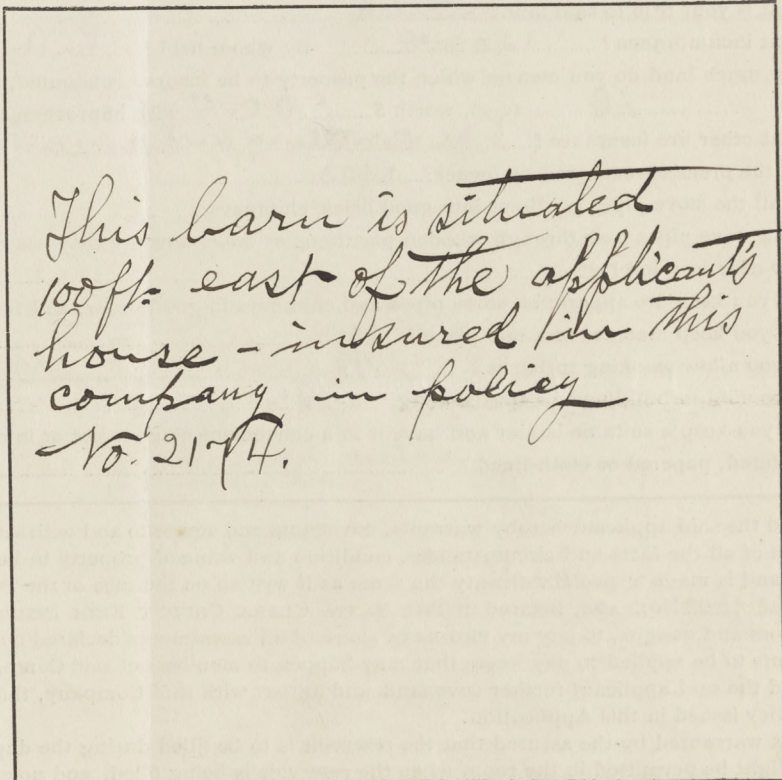 This barn is situated
100 ft. east of the applicant's
house - insured in this
company in policy
No.